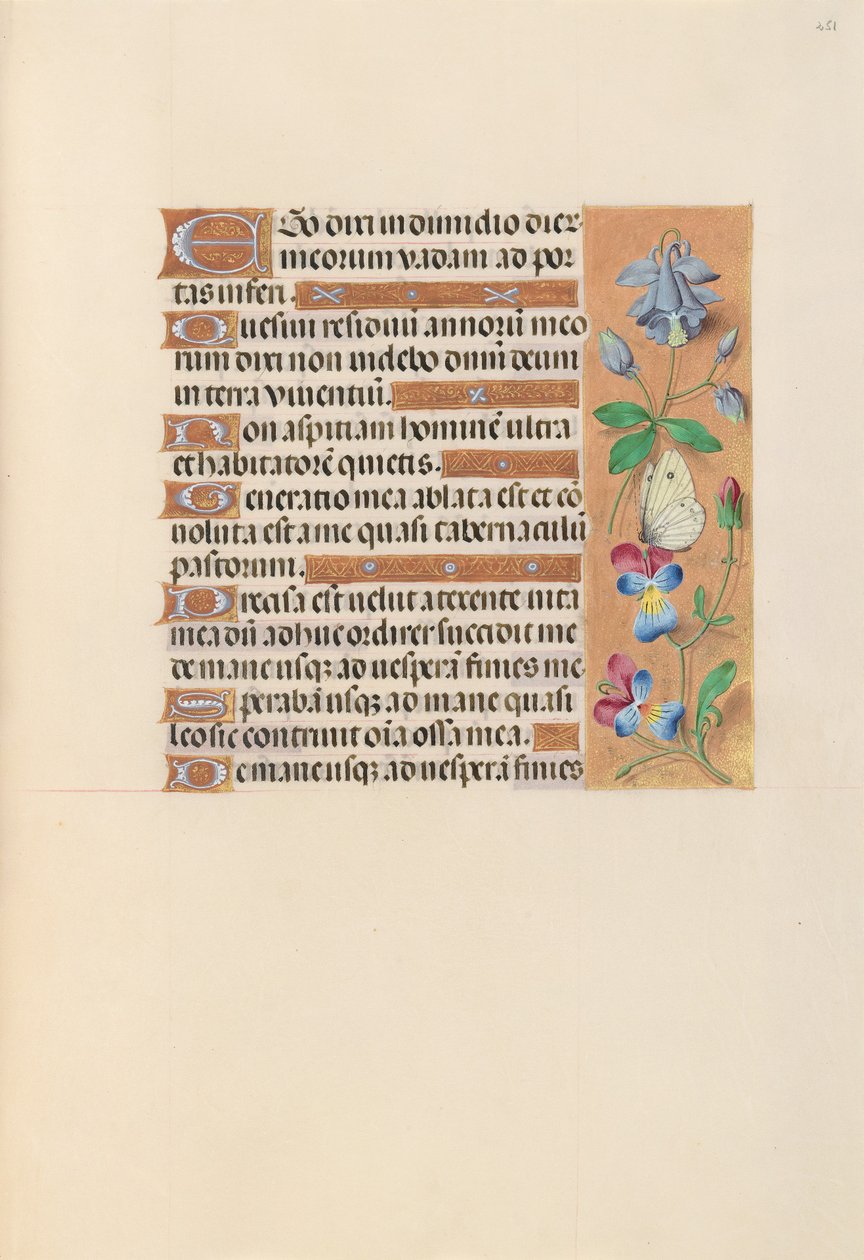 251
Ego dixi in dimidio dier
meorum vadam ad por
tas inferi.
Quesiui residuū annorū meo
rum dixi non videbo dnm̄ deum
in terra viuentiū.
Non aspitiam hominē ultra
et habitatorē quietis.
Generatio mea ablata est et cō
uoluta est a me quasi tabernaculū
pastorum.
Precisa est uelut a texente uita
mea dū adhuc ordirer succidit me
de mane usqꝫ ad uesperā finies me.
Sperabā usqꝫ ad mane quasi
leo sic contriuit oīa ossa mea.
De mane usqꝫ ad uesperā finies